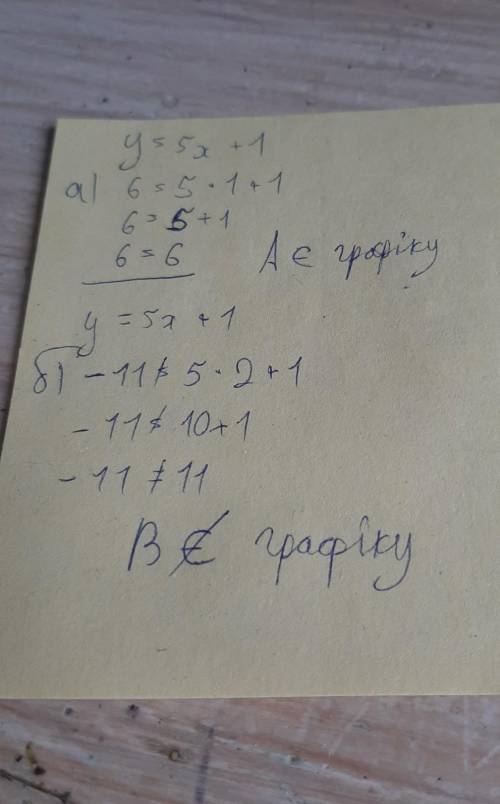 y = 5x + 1
а) 6 = 5 · 1 + 1
6 = 5 + 1
6 = 6 A ∈ графіку
y = 5x + 1
б) - 11 ≠ 5 · 2 + 1
- 11 ≠ 10 + 1
- 11 ≠ 11
B ∉ графіку